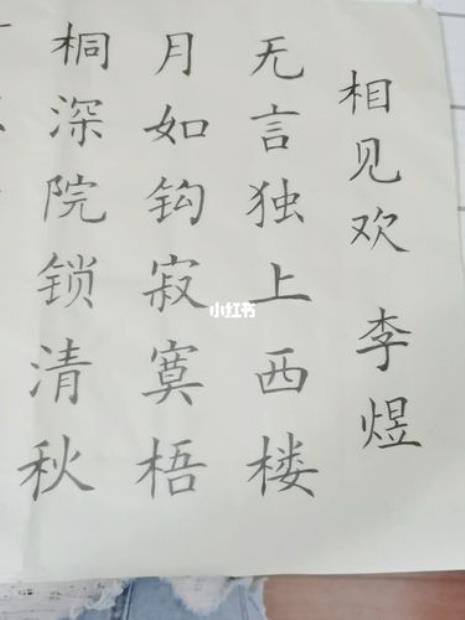 相见欢 李煜
无言独上西楼
月如钩寂寞梧
桐深院锁清秋
小红书